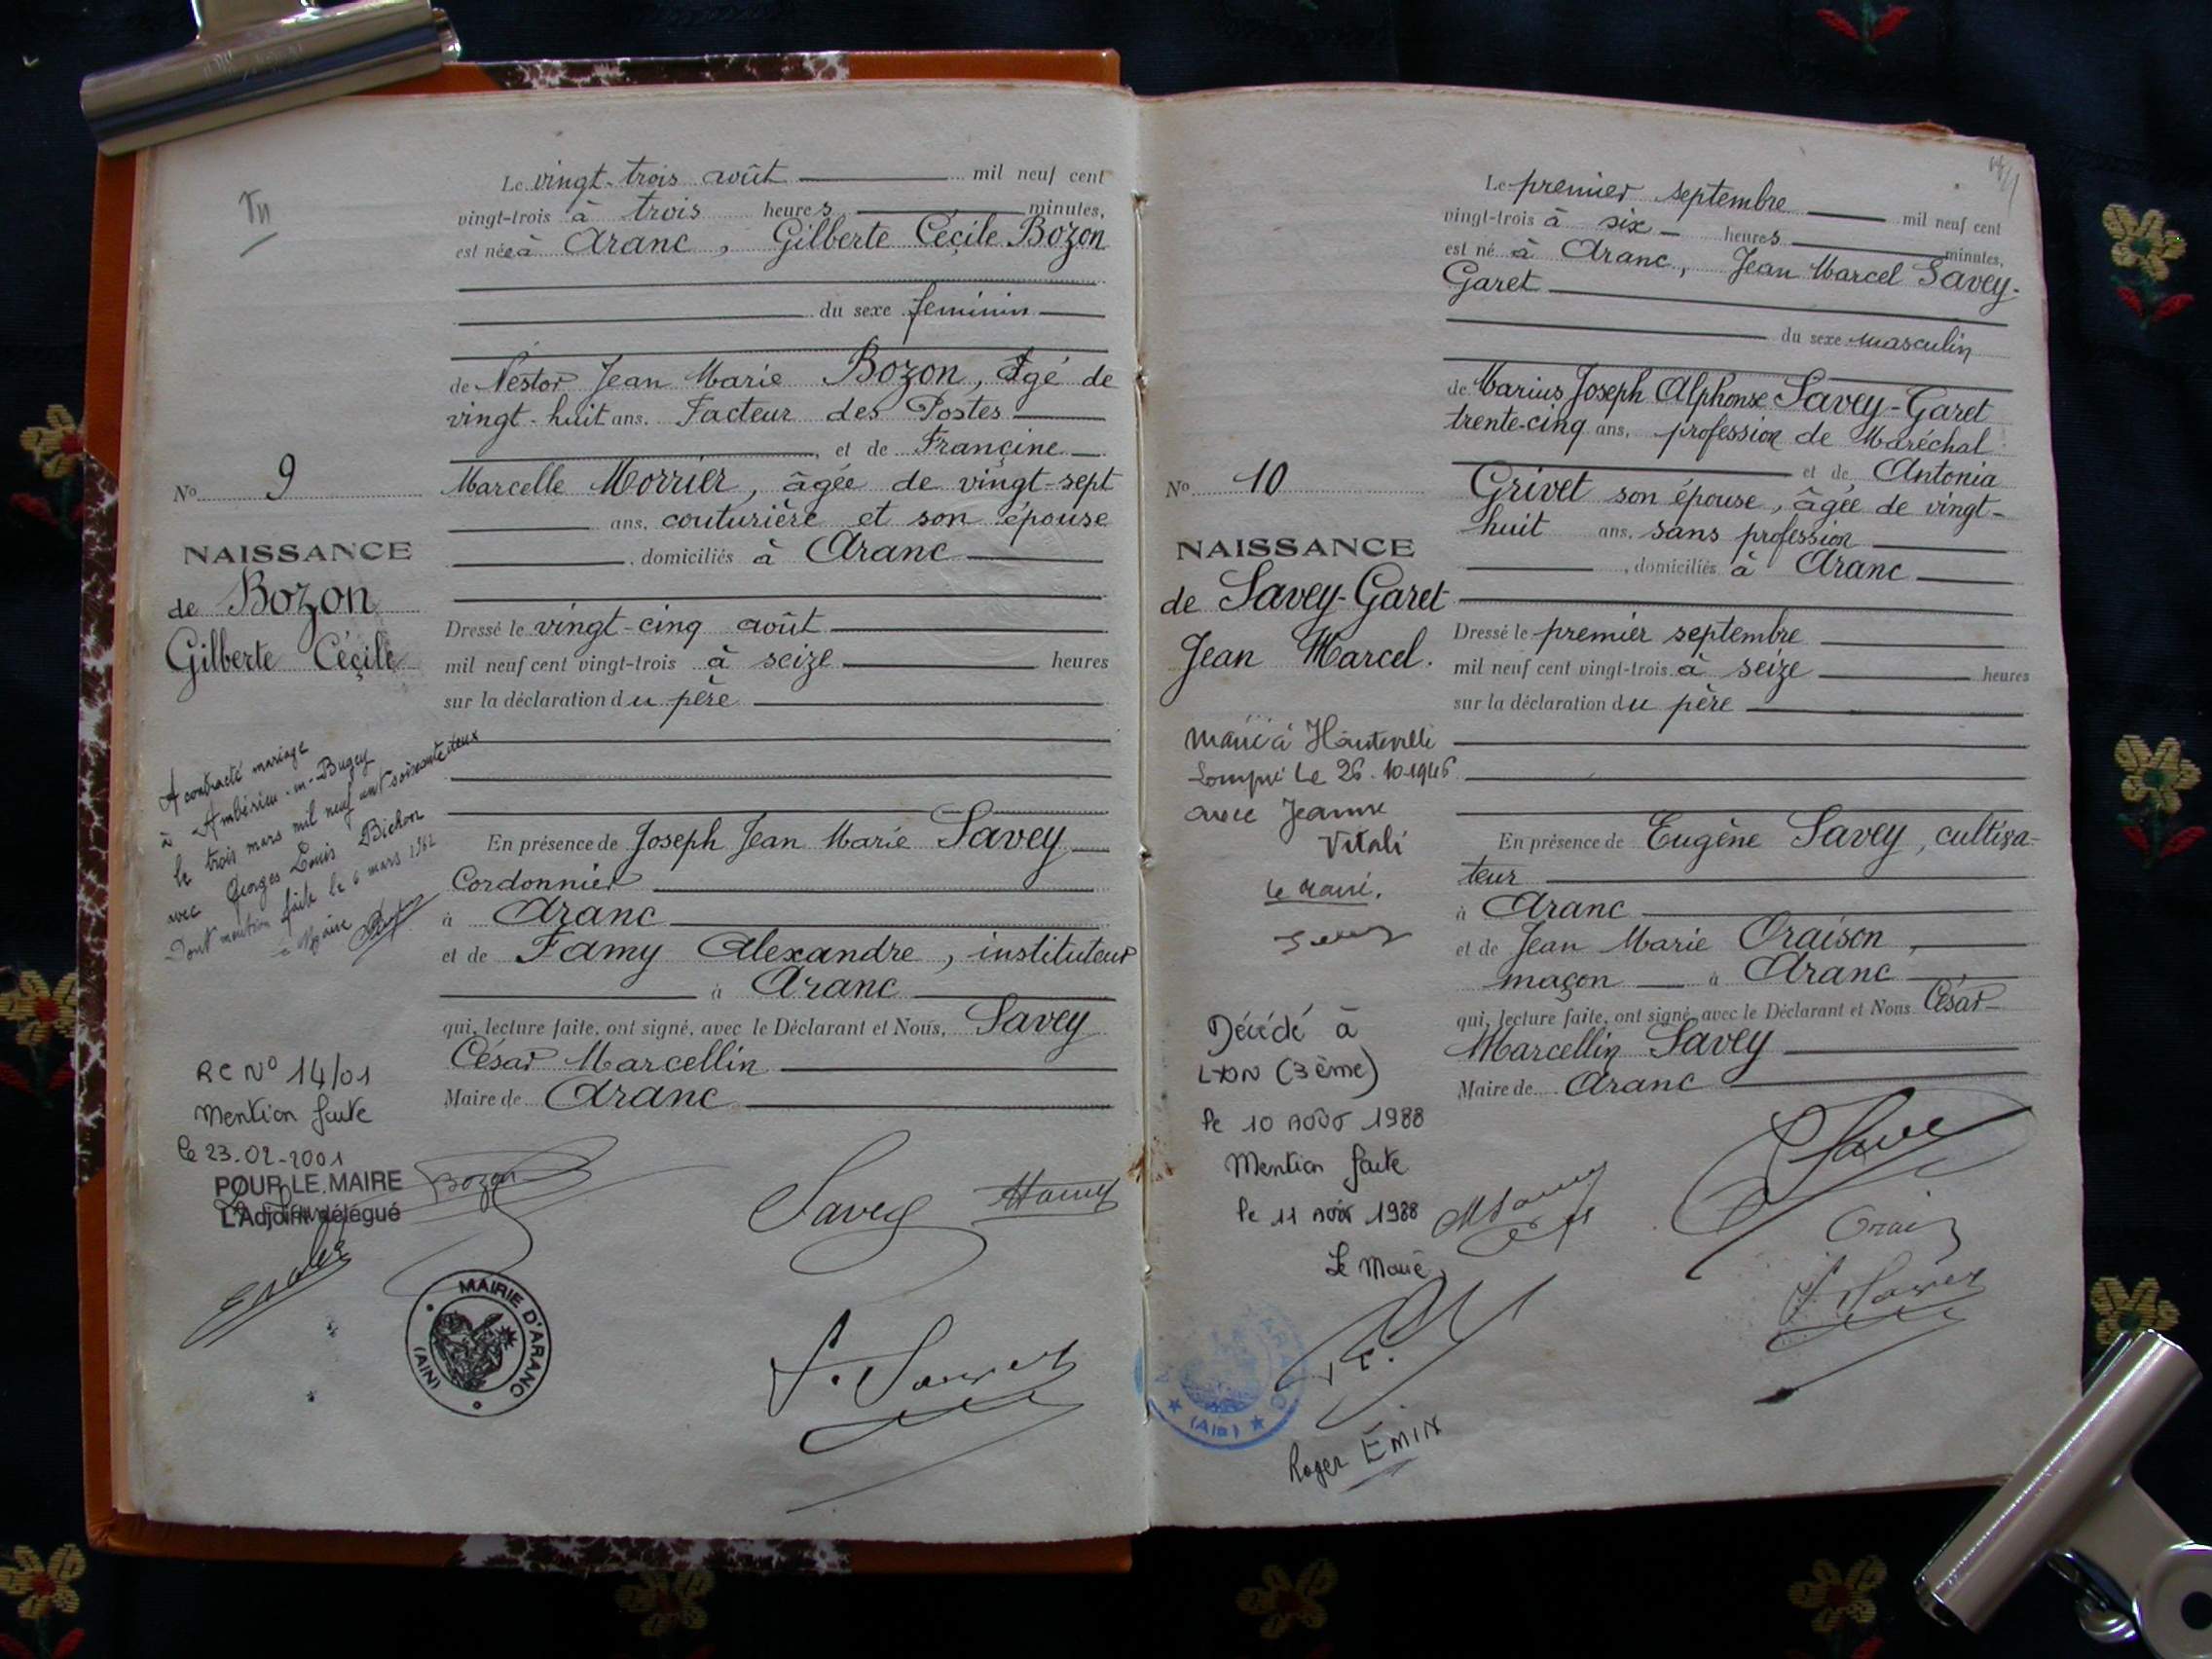 Le vingt-trois août mil neuf cent
vingt-trois à trois heures minutes,
est née à Aranc, Gilberte Céçile Bozon
du sexe feminin
de Nestor Jean Marie Bozon, Agé de
vingt-huit ans. Facteur des Postes
, et de Françine
Marcelle Morrier, âgée de vingt-sept
ans, couturière et son épouse
, domiciliés à Aranc
Dressé le vingt-cinq août
mil neuf cent vingt-trois à seize heures
sur la déclaration du père
En présence de Joseph Jean Marie Savey
Cordonnier
à Aranc
et de Famy Alexandre, instituteur
à Aranc
qui, lecture faite, ont signé, avec le Déclarant et Nous, Savey
César Marcellin
Maire de Aranc
No 9
NAISSANCE
de Bozon
Gilberte Céçile
A contracté mariage
à Ambérieu-en-Bugey
le trois mars mil neuf cent soixante deux
avec Georges Louis Bichon
Dont mention faite le 6 mars 1962
Maire
RC N° 14/01
Mention faite
le 23.02.2001
POUR LE MAIRE
L'Adjoint délégué
Bozon
Savey
MAIRIE D'ARANC
(AIN)
Le premier septembre mil neuf cent
vingt-trois à six heures minutes,
est né à Aranc, Jean Marcel Savey-
Garet
du sexe masculin
de Marius Joseph Alphonse Savey-Garet
trente-cinq ans, profession de Maréchal
et de Antonia
Grivet son épouse, âgée de vingt-
huit ans, sans profession
, domiciliés à Aranc
Dressé le premier septembre
mil neuf cent vingt-trois à seize heures
sur la déclaration du père
En présence de Eugène Savey, cultiva-
teur
à Aranc
et de Jean Marie Oraison,
maçon à Aranc
qui, lecture faite, ont signé, avec le Déclarant et Nous César
Marcellin Savey
Maire de Aranc
No 10
NAISSANCE
de Savey-Garet
Jean Marcel.
Marié à Hauteville
Lompnès Le 26-10-1946
avec Jeanne
Vitali
Le Maire.
Décédé à
LYON (3ème)
le 10 AOÛT 1988
Mention faite
le 11 Août 1988
Le Maire
(Ain)
Roger EMIN